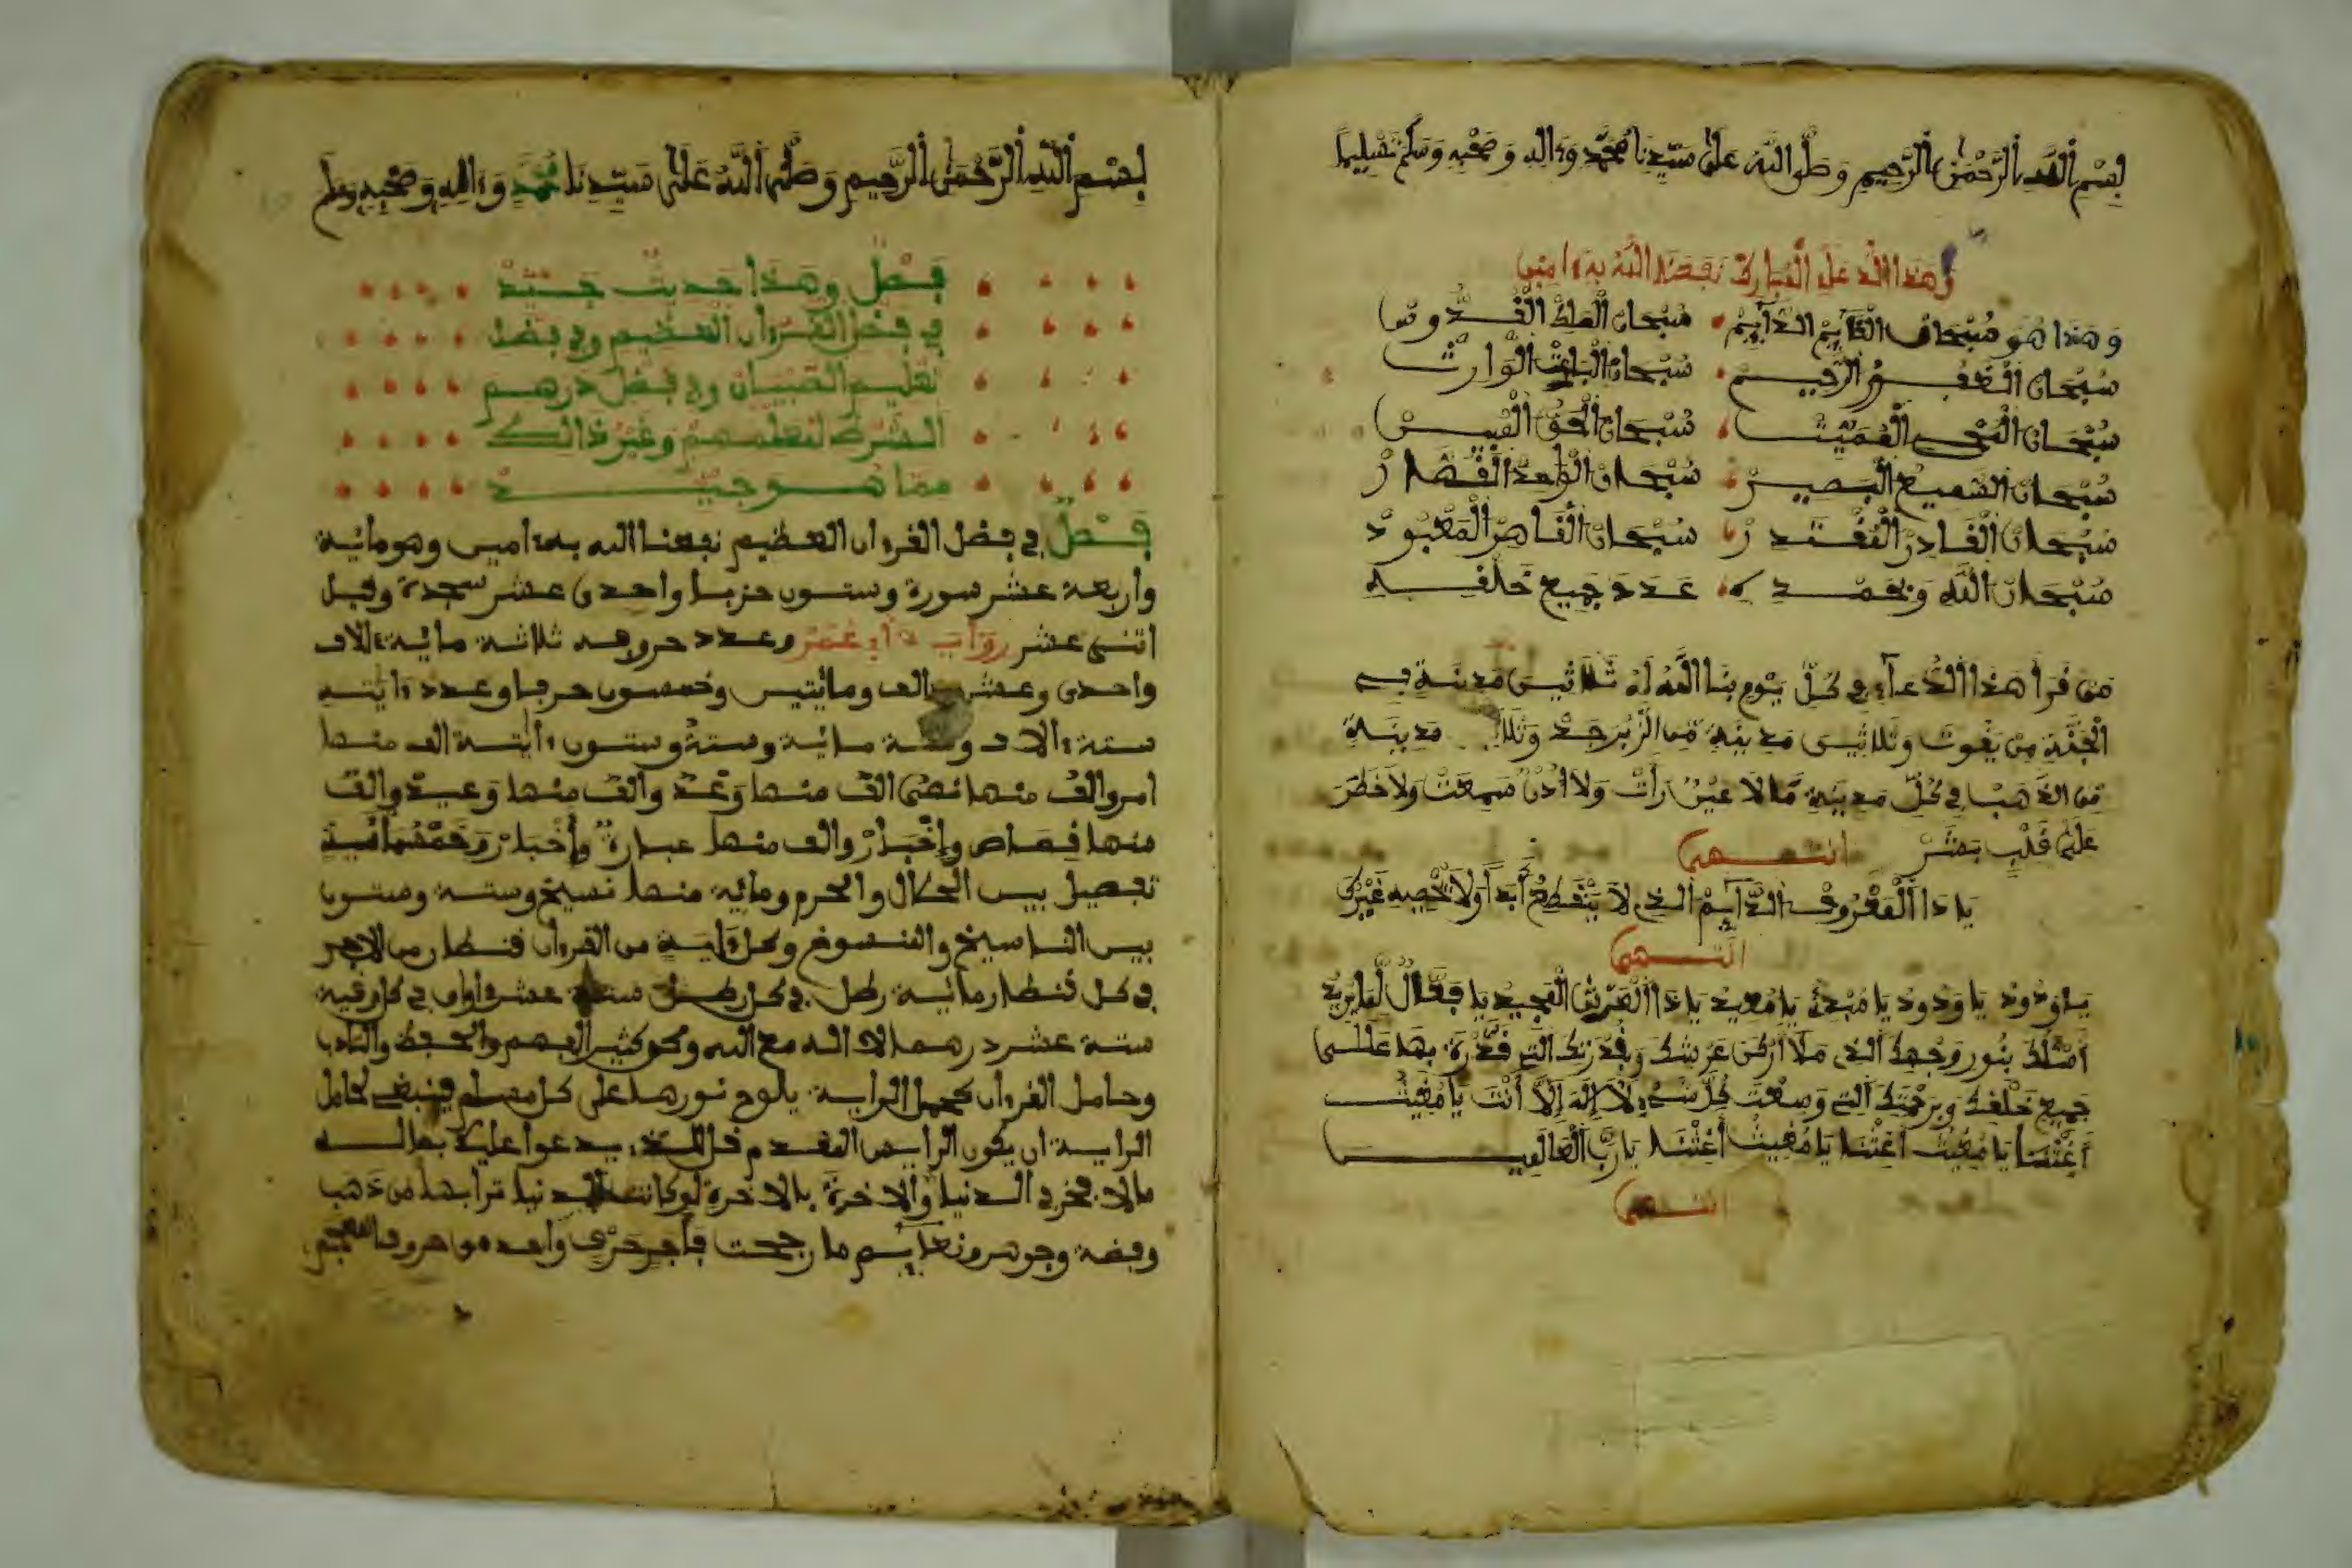 بسم الله الرحمن الرحيم وصلى الله على سيدنا محمد وءاله وصحبه وسلم تسليما
وهذا الدعاء المبارك نفعنا الله به ءامين
وهذا هو سبحان القآيم الدآيم سبحان الملك القدوس
سبحان الغفور الرحيم سبحان الباعث الوارث
سبحان المحيي المميت سبحان الحي القيوم
سبحان السميع البصير سبحان الواحد القهار
سبحان القادر المقتدر سبحان القاهر المعبود
سبحان الله وبحمده عدد جميع خلقه
من قرأ هذا الدعآء في كل يوم بنا الله له ثلاثين مدينة في
الجنة من يقوت وثلاثين مدينة من الزبرجد وثلا مدينة
من الذهب في كل مدينة ما لا عين رأت ولا اذن سمعت ولا خطر
على قلب بشر انتهى
يا ذا المعروف الدآيم الذي لا ينقطع أبدا ولا يحصيه غيرك
انتهى
يا ودود يا ودود يا مبدئ يا معيد يا ذا العرش المجيد يا فعال لما يريد
أسئلك بنور وجهك الذي ملأ أركن عرشك وبقدرتك التي قدرة بها على
جميع خلقك وبرحمتك التي وسعت كل شيء لا إله إلا أنت يا مغيث
أغثنا يا مغيث أغثنا يا مغيث أغثنا يا رب العالمين
انتهى
بسم الله الرحمن الرحيم وصلى الله على سيدنا محمد وءاله وصحبه وسلم
فصل وهذا حديث جيد
في فضل القرءان العظيم وفي فضل
تعليم الصبيان وفي فضل درهم
لمعلمهم وغير ذالك
مما هو جيد
فصل في فضل القرءان العظيم نفعنا الله به ءامين وهو مائية
واربعة عشر سورة وستون حزبا واحدى عشر سجدة وقيل
اثنى عشر وعدد حروفه ثلاثة مائية ءالاف
واحدى وعشرين الف ومائيتين وخمسون حرفا وعدد ءايته
ستة ءالاف وستة مائية وستة وستون ءاية الف منها
امر والف منها نهى الف منها وعد والف منها وعيد والف
منها قصاص وإخبار والف منها عبارة وأخبار وخمسمائية
تفصيل بين الحلال والحرم ومائية منها نسيخ وستة وستون
بين الناسيخ والمنسوخ وكل ءاية من القرءان قنطار من الاجر
في كل قنطار مائية رطل في كل رطل ستة عشر اواق في كل وقية
ستة عشر درهما لا اله مع الله وهو كثير الفهم والحفظ
وحامل القرءان كحمل الراية يلوح نورها على كل مسلم فينبغي لحامل
الراية ان يكون
وفضة وجوهر ما رجحت فأجر حرف واحد من حروف المعجم